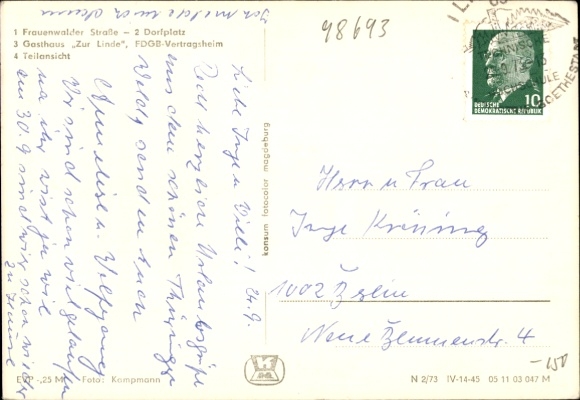 1 Frauenwalder Straße – 2 Dorfplatz
3 Gasthaus „Zur Linde", FDGB-Vertragsheim
4 Teilansicht
98693
10
DEUTSCHE
DEMOKRATISCHE REPUBLIK
TECHNISCHE
HOCHSCHULE
GOETHESTADT
konsum fotocolor magdeburg
Liebe Inge u. Willi! 24.9.
Recht herzliche Urlaubsgrüße
aus dem schönen Thüringer
Wald senden Euch
Anneliese u. Wolfgang
Wir sind schon viel gelaufen
na ihr wißt ja wie
am 30.9 sind wir schon wieder
zu Hause
Ich melde mich dann
Herrn u Frau
Inge
1002 Berlin
Neue Blumenstr. 4
EVP -,25 M Foto: Kampmann
N 2/73 IV-14-45 05 11 03 047 M
-150